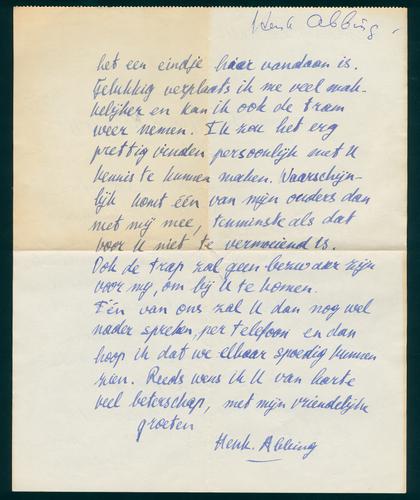 Henk Abbing.
het een eindje haar vandaan is.
Gelukkig verplaats ik me veel mak-
kelijker en kan ik ook de tram
weer nemen. Ik zou het erg
prettig vinden persoonlijk met U
kennis te kunnen maken. Waarschijn-
lijk komt één van mijn ouders dan
met mij mee, tenminste als dat
voor U niet te vermoeiend is.
Ook de trap zal geen bezwaar zijn
voor mij, om bij U te komen.
Eén van ons zal U dan nog wel
nader spreken, per telefoon en dan
hoop ik dat we elkaar spoedig kunnen
zien. Reeds wens ik U van harte
veel beterschap, met mijn vriendelijke
groeten
Henk. Abbing